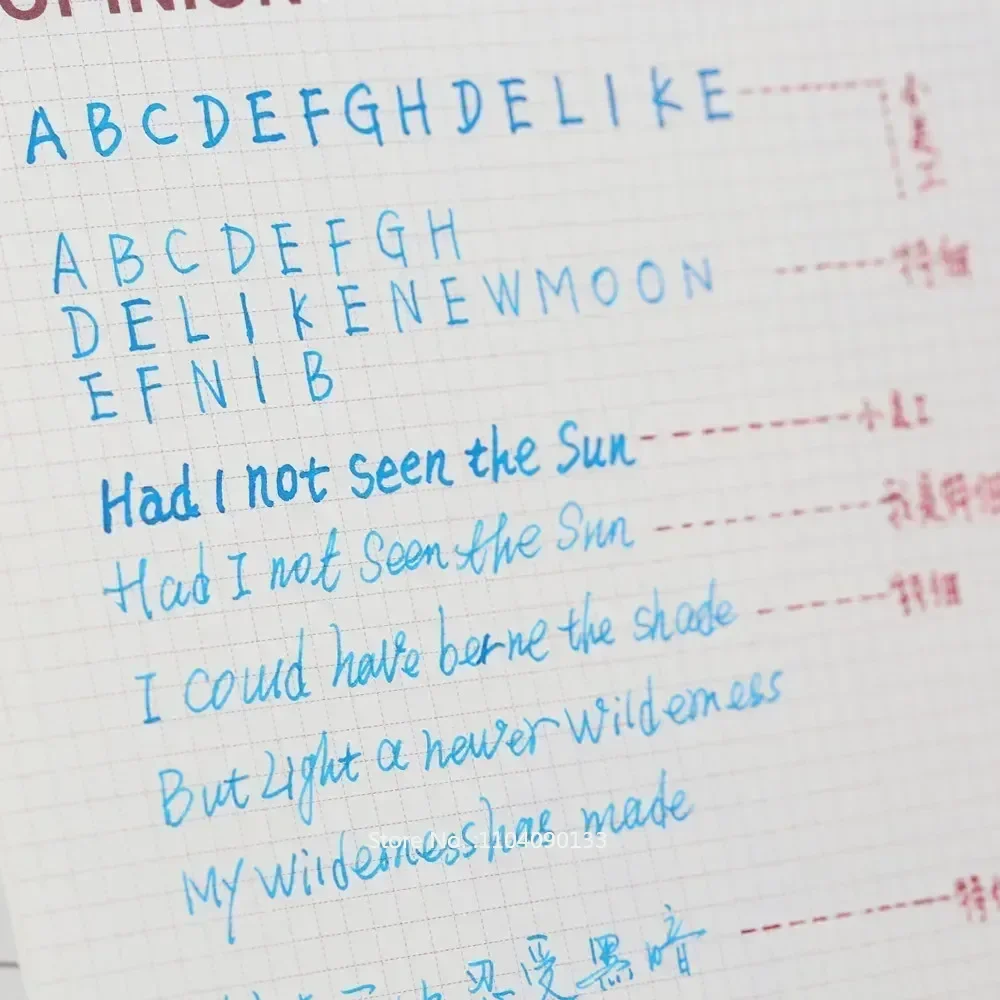 OPINION
A B C D E F G H D E L I K E
A B C D E F G H
D E L I K E N E W M O O N 特细
E F N I B
Had I not seen the Sun 小美工
Had I not Seen the Sun
I could have berne the shade 特细
But Light a newer Wilderness
My Wilderness has made
Store No.:1104090133
忍受黑暗